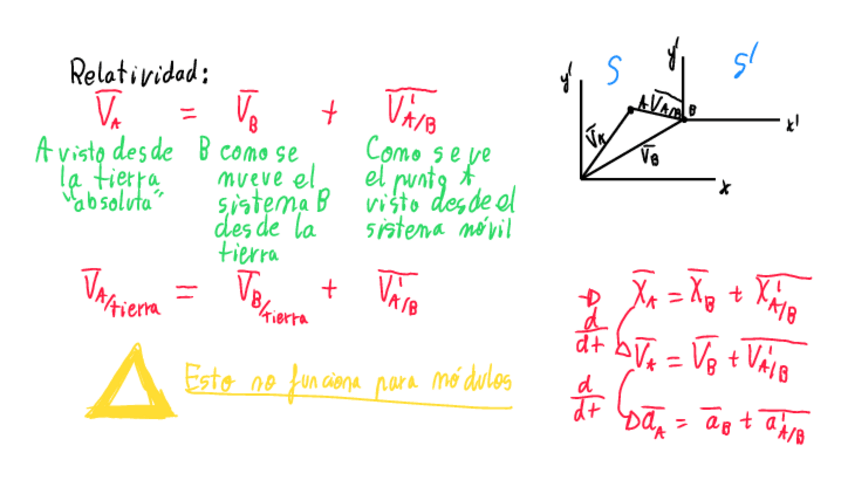 Relatividad:
V̅_A = V̅_B + V̅'_A/B
A visto desde la tierra "absoluta"
B como se mueve el sistema B desde la tierra
Como se ve el punto A visto desde el sistema móvil
V̅_A/tierra = V̅_B/tierra + V̅'_A/B
Esto no funciona para módulos
S S'
y' y'
A V̅_A/B B
x'
V̅_A
V̅_B
x
X̅_A = X̅_B + X̅'_A/B
d/dt
V̅_A = V̅_B + V̅'_A/B
d/dt
a̅_A = a̅_B + a̅'_A/B